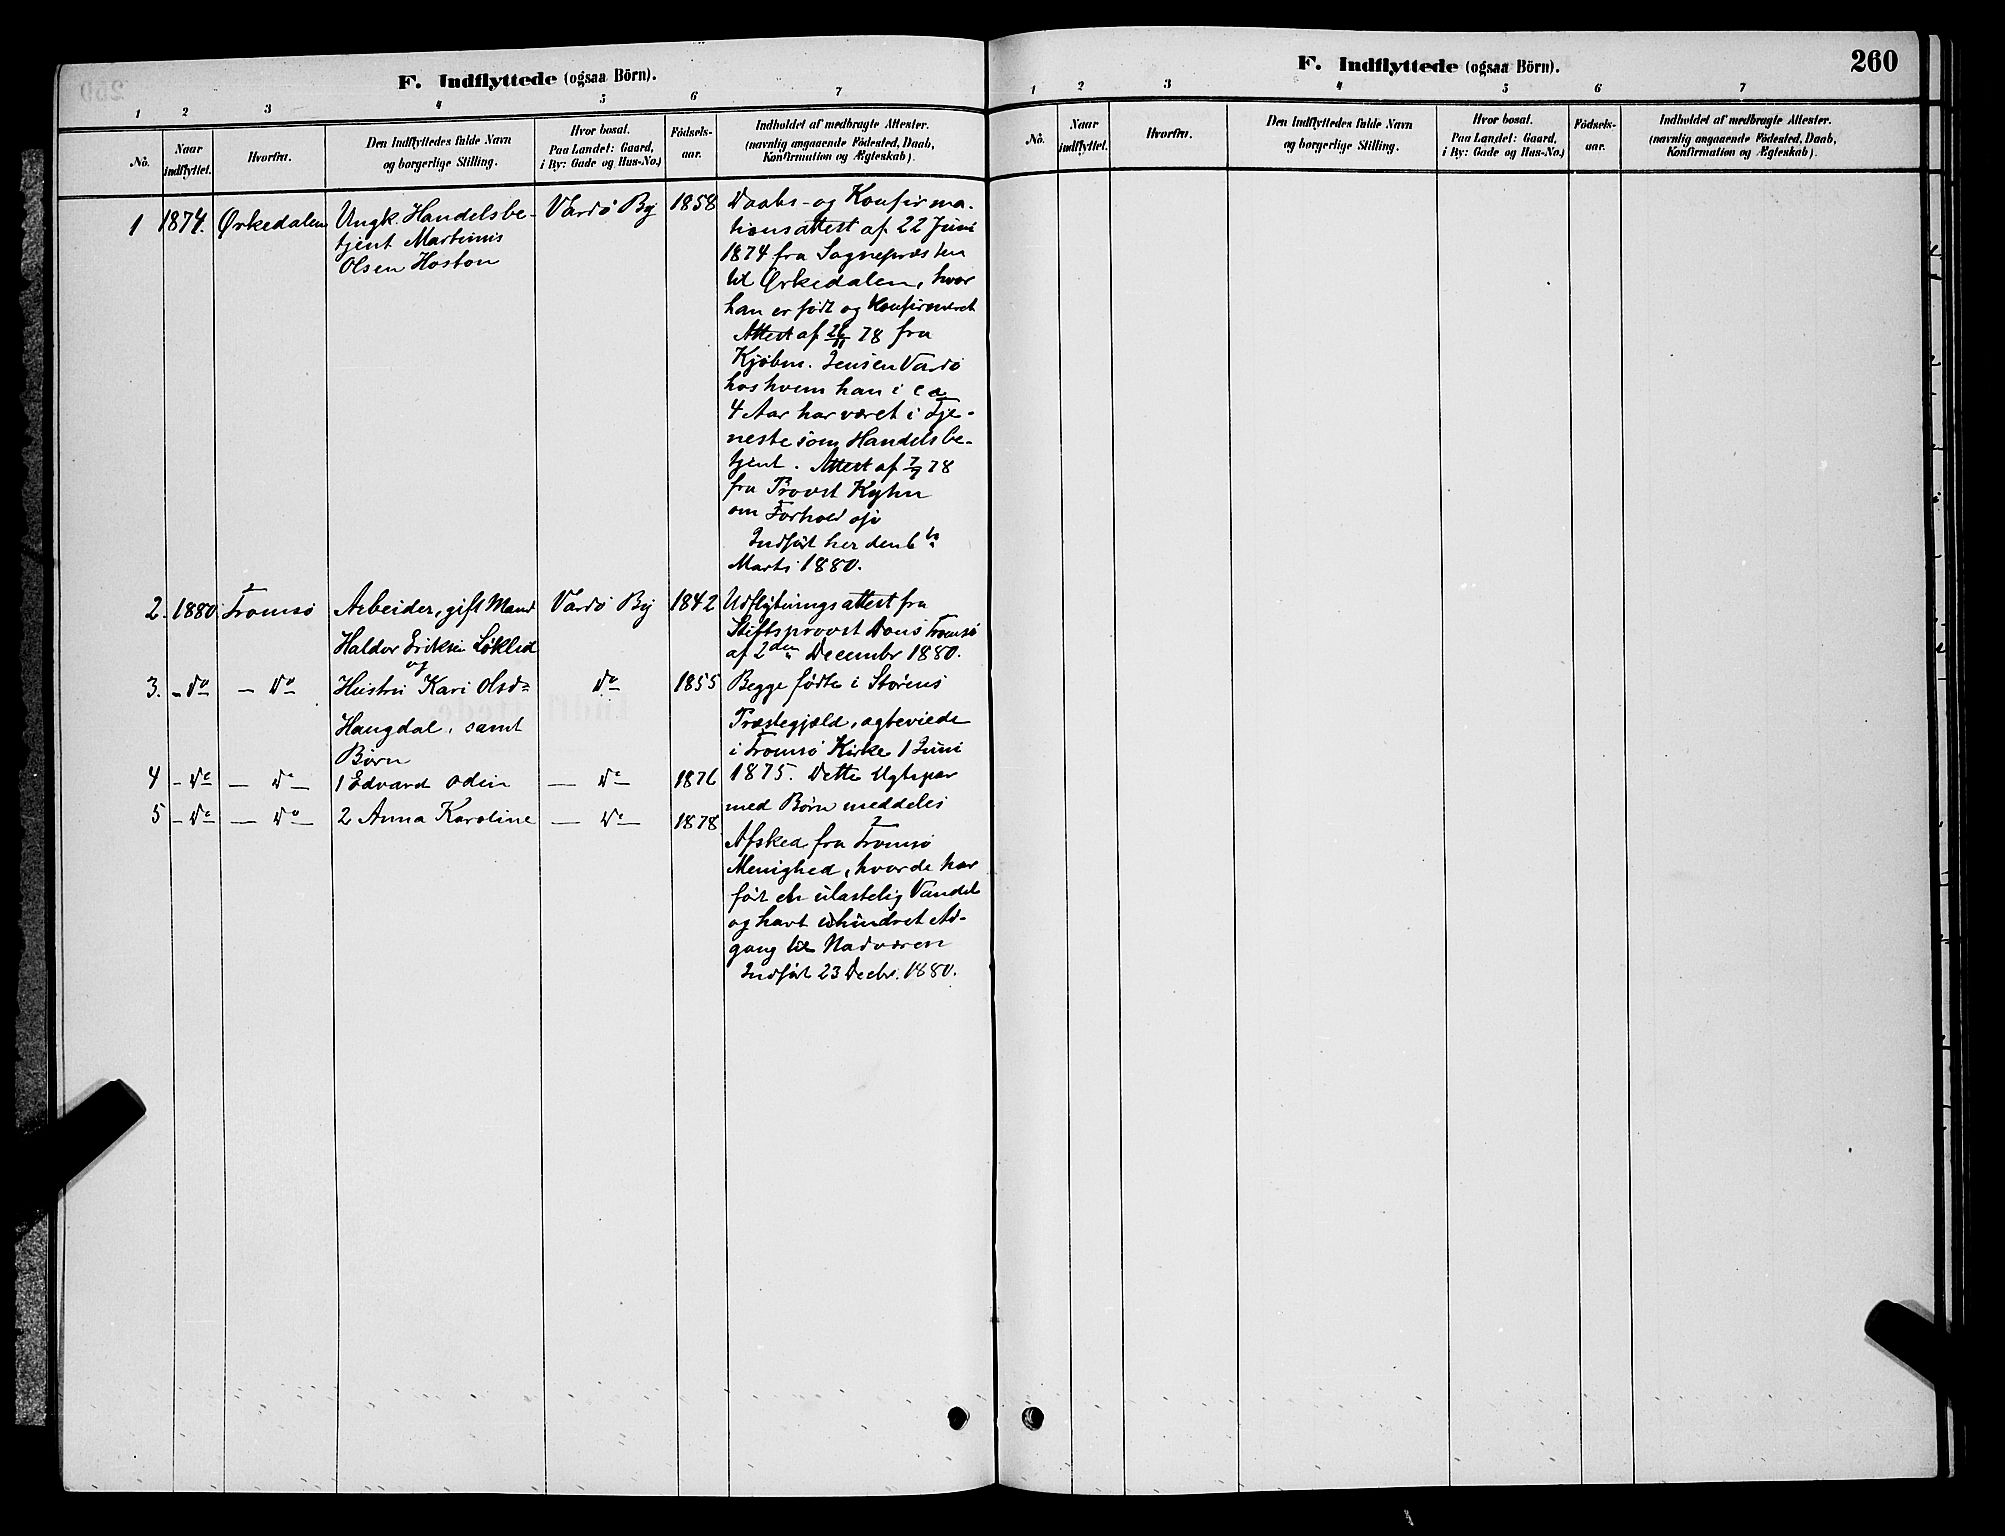 F. Indflyttede (ogsaa Börn).
1 2 3 4 5 6 7
No.
Naar indflyttet.
Hvorfra.
Den Indflyttedes fulde Navn
og borgerlige Stilling.
Hvor bosat.
Paa Landet: Gaard,
i By: Gade og Hus-No.)
Födsels-
aar.
Indholdet af medbragte Attester.
(navnlig angaaende Födested, Daab,
Konfirmation og Ægteskab).
1 1874. Ørkedalen
Ungk. Handelsbe-
tjent Martinus
Olsen Hoston
Vardö By
1858
Daabs- og Konfirma-
tionsattest af 22 Juni
1874 fra Sognepræsten
til Ørkedalen, hvor
han er født og Konfirmeret
Attest af 26/11 78 fra
Kjöbm. Jensen Vardö
hos hvem han i ca
4 Aar har været i Tje-
neste som Handelsbe-
tjent. Attest af 7/9 78
fra Provst Kyhn
om Forhold
Indført her den 6te
Marts 1880.
2. 1880 Tromsö
Arbeider, gift Mand
Haldor Eriksen Løklid
og
Vardö By
1842
Udflytningsattest fra
Stiftsprovst Dons Tromsö
af 2den Decembr 1880.
3. - Do - Do
Hustru Kari Olsd.
Haugdal, samt
Börn
Do
1855
Begge fødte i Störens
Præstegjæld, og beviede
i Tromsö Kirke 1 Juni
1875. Dette Ægtepar
med Børn meddeles
Afsked fra Tromsö
Menighed, hvor de har
ført en ulastelig Vandel
og havt uhindret Ad-
gang til Nadveren
Indført 23 Decbr. 1880.
4 - Do - Do 1 Edvard Odin - Do 1876
5 - Do - Do 2 Anna Karoline - Do 1878
F. Indflyttede (ogsaa Börn).
260
1 2 3 4 5 6 7
No.
Naar
indflyttet.
Hvorfra.
Den Indflyttedes fulde Navn
og borgerlige Stilling.
Hvor bosat.
Paa Landet: Gaard,
i By: Gade og Hus-No.)
Födsels-
aar.
Indholdet af medbragte Attester.
(navnlig angaaende Födested, Daab,
Konfirmation og Ægteskab).